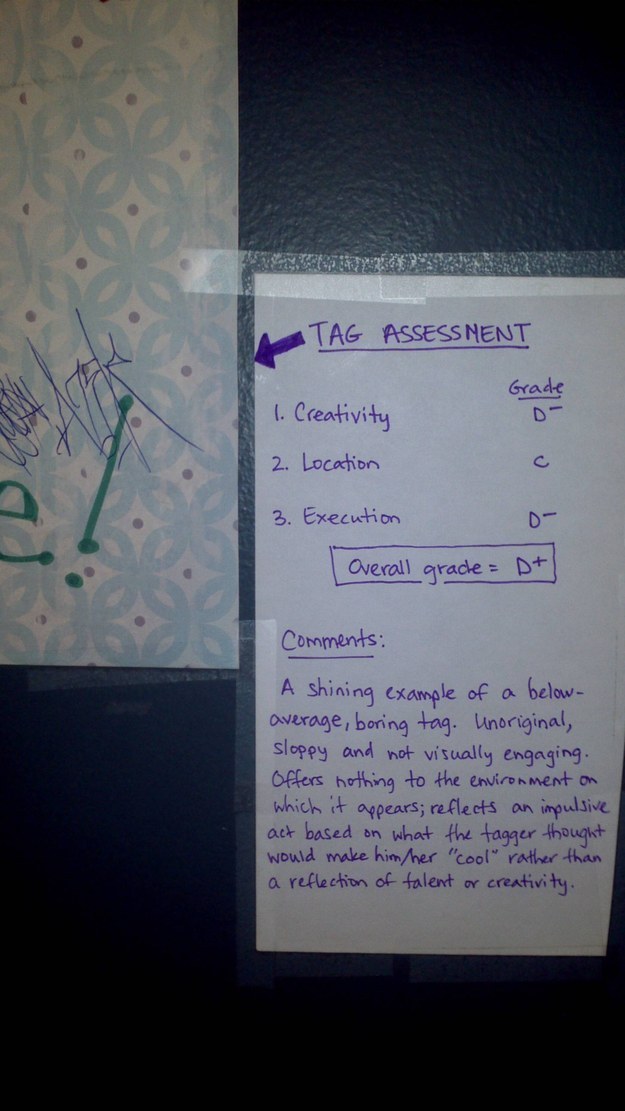 TAG ASSESSMENT
Grade
1. Creativity D-
2. Location C
3. Execution D-
Overall grade = D+
Comments:
A shining example of a below-
average, boring tag. Unoriginal,
sloppy and not visually engaging.
Offers nothing to the environment on
which it appears; reflects an impulsive
act based on what the tagger thought
would make him/her "cool" rather than
a reflection of talent or creativity.